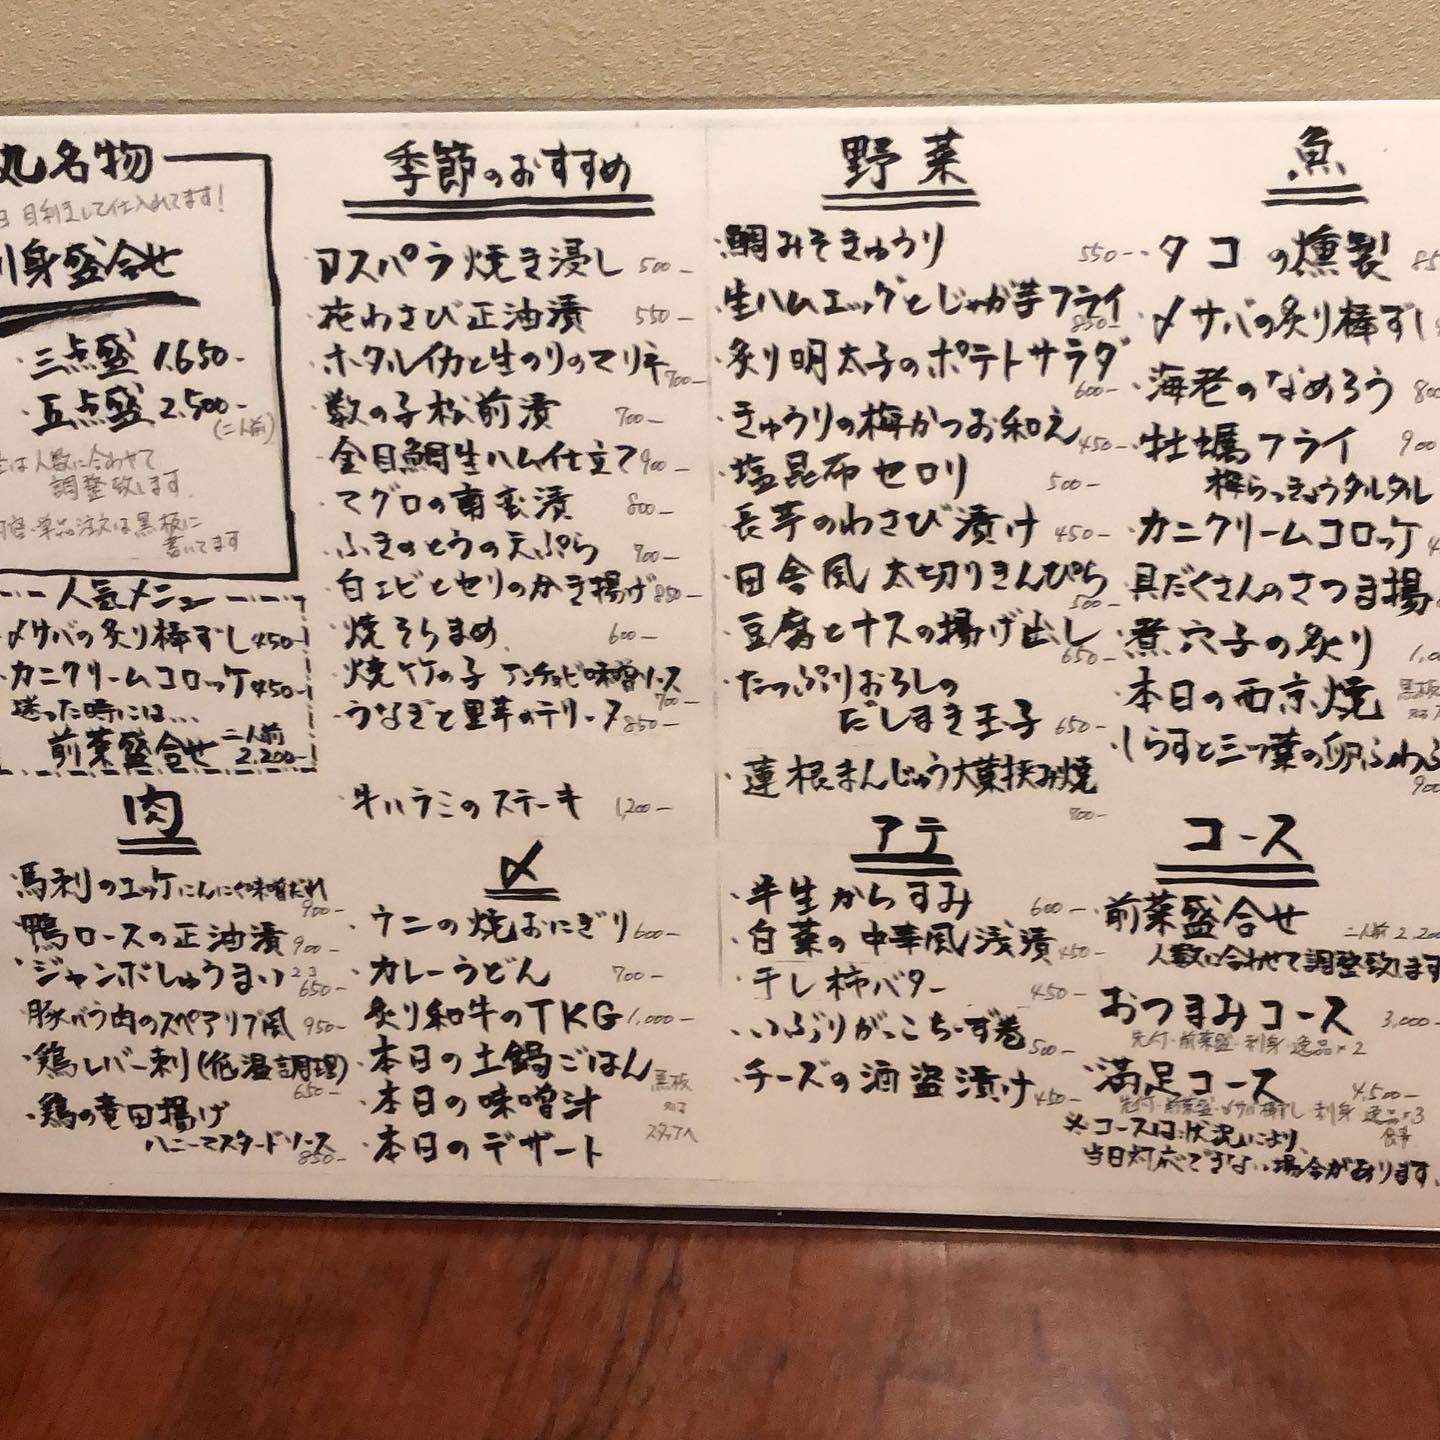 丸名物
目利きして仕入れてます!
刺身盛合せ
・三点盛 1,650-
・五点盛 2,500-
(二人前)
は人数に合わせて
調整致します
単品注文は黒板に
書いてます
人気メニュー
〆サバの炙り棒ずし 450-
カニクリームコロッケ 450-
迷った時には…
前菜盛合せ 二人前 2,200-
肉
・馬刺のユッケにんにく味噌だれ
900-
・鴨ロースの正油漬 900-
・ジャンボしゅうまい 2コ 650-
・豚バラ肉のスペアリブ風 950-
・鶏レバー刺(低温調理)
650-
・鶏の竜田揚げ
ハニーマスタードソース
850-
季節のおすすめ
アスパラ焼き浸し 500-
花わさび正油漬 550-
ホタルイカと生のりのマリネ 700-
数の子松前漬 700-
金目鯛生ハム仕立て 900-
マグロの南蛮漬 800-
ふきのとうの天ぷら 700-
白エビとセリのかき揚げ 850-
焼そらまめ 600-
焼竹の子 アンチョビ味噌ソース
700-
うなぎと里芋のテリーヌ 850-
・牛ハラミのステーキ 1,200-
〆
・ウニの焼おにぎり 600-
・カレーうどん 700-
・炙り和牛のTKG 1,000-
・本日の土鍋ごはん
・本日の味噌汁
・本日のデザート
黒板
又は
スタッフへ
野菜
・鯛みそきゅうり 550-
・生ハムエッグとじゃが芋フライ
850-
・炙り明太子のポテトサラダ
600-
・きゅうりの梅かつお和え 450-
・塩昆布セロリ 500-
・長芋のわさび漬け 450-
・田舎風 太切りきんぴら
500-
・豆腐とナスの揚げ出し
650-
・たっぷりおろしの
だしまき玉子 650-
・蓮根まんじゅう大葉挟み焼
700-
アテ
・半生からすみ 600-
・白菜の中華風浅漬 450-
・干し柿バター 450-
・いぶりがっこチーズ巻 500-
・チーズの酒盗漬け 450-
魚
・タコの燻製 85
・〆サバの炙り棒ずし
・海老のなめろう 800
・牡蠣フライ 900
梅らっきょうタルタル
・カニクリームコロッケ
・具だくさんのさつま揚
・煮穴子の炙り 1,0
・本日の西京焼 黒板
・しらすと三つ葉の卵ふわふ
900
コース
・前菜盛合せ 二人前 2,200
人数に合わせて調整致します
・おつまみコース 3,000-
先付・前菜盛・刺身・逸品×2
・満足コース 4,500-
先付・前菜盛・〆サバ棒ずし・刺身・逸品×3
食事
※コースは状況により、
当日対応できない場合があります。